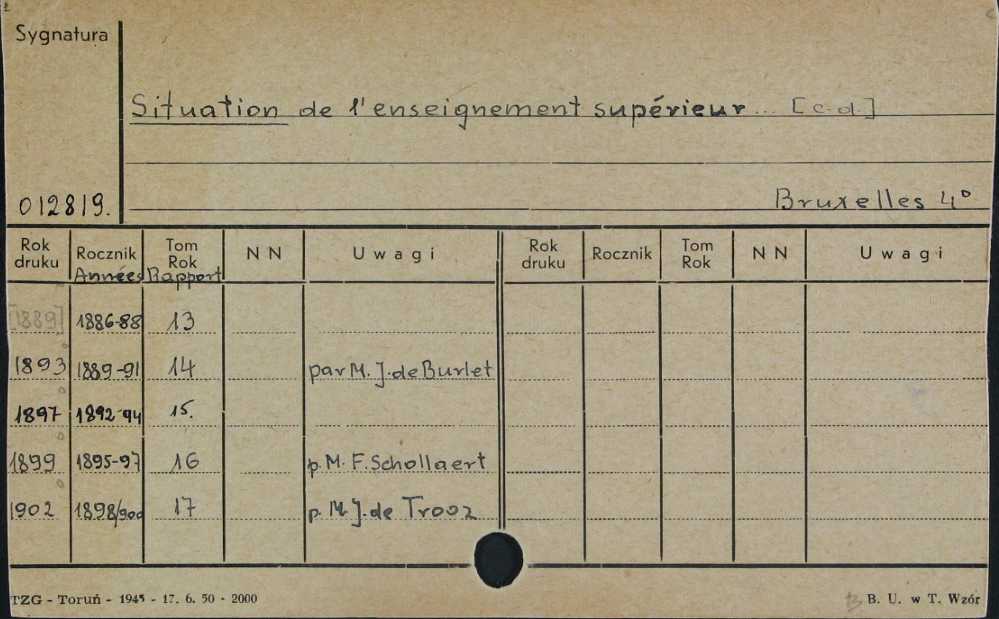 Sygnatura
Situation de l'enseignement supérieur ... [c.d.]
012819.
Bruxelles 4°
Rok druku Rocznik Tom Rok N N Uwagi Rok druku Rocznik Tom Rok N N Uwagi
Années Rapport
[1889] 1886-88 13
1893 1889-91 14 par M. J. de Burlet
1897 1892-94 15.
1899 1895-97 16 p. M. F. Schollaert
1902 1898/900 17 p. M. J. de Trooz
TZG - Toruń - 1945 - 17. 6. 50 - 2000
B. U. w T. Wzór